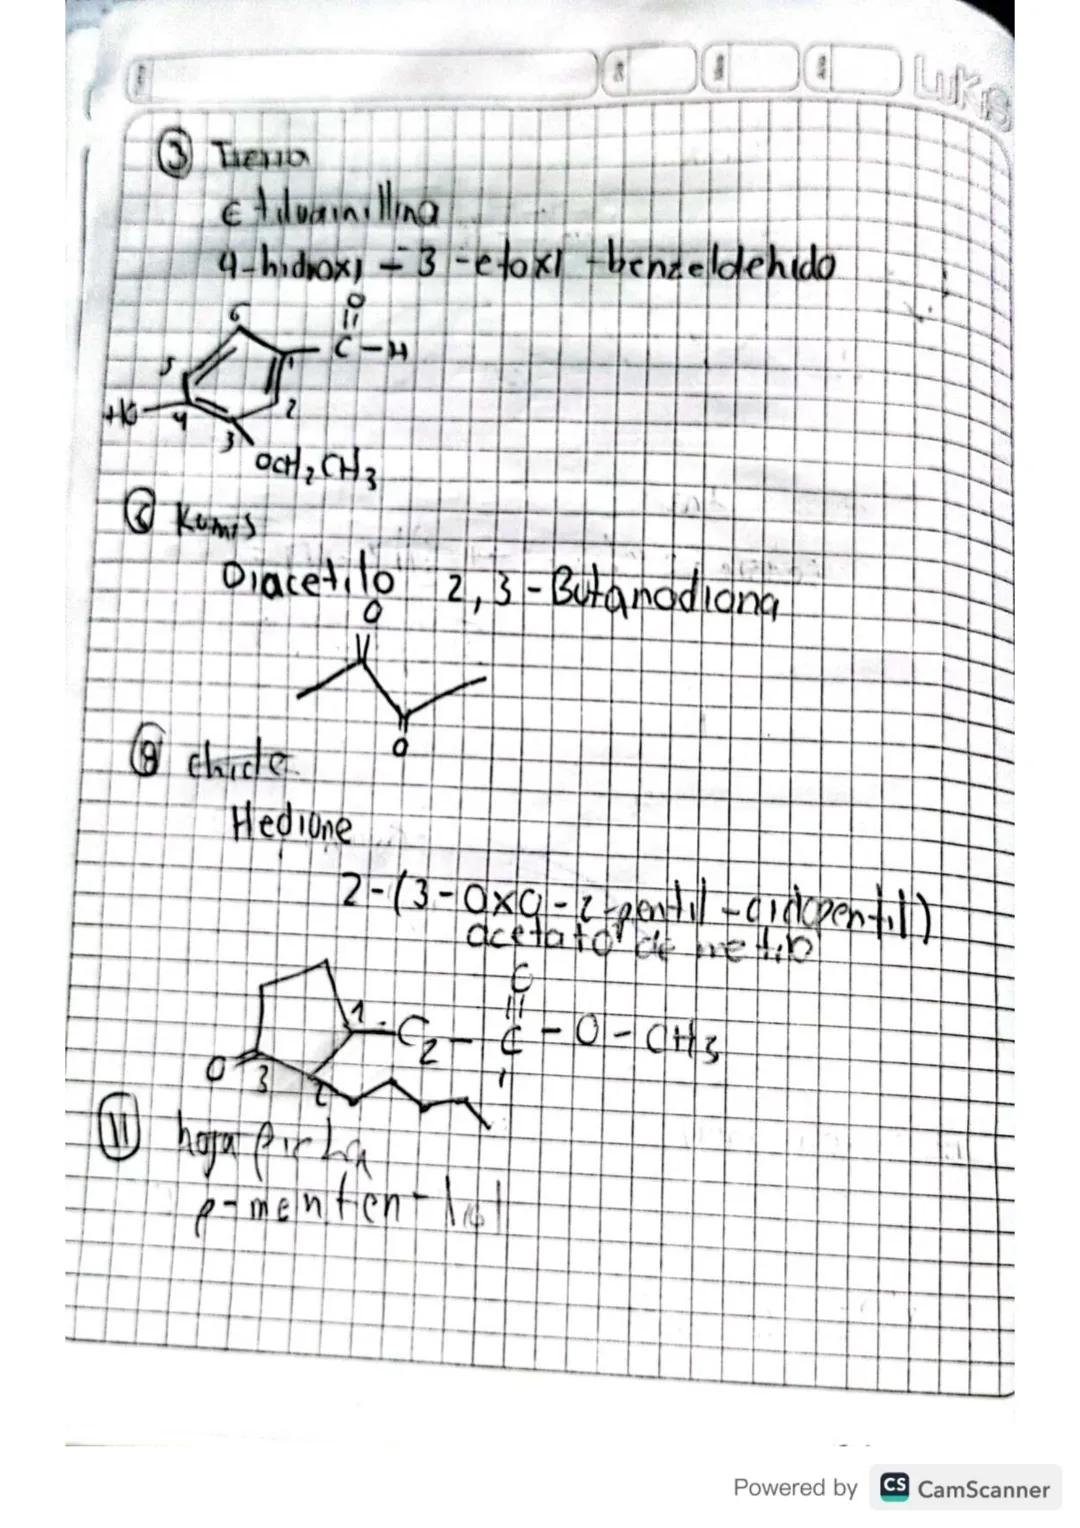 LUKAS
③ Tierra
Etilvainillina
4-hidroxi - 3 - etoxi - benzeldehido
O
6
C - H
1
5
HO
4
2
3
OCH2CH3
⑥ Kumis
Diacetilo 2,3 - Butanodiona
O
O
⑧ chicle
Hedione
2-(3-oxo-2-pentil-ciclopentil)
acetato de metilo
O
1 - C2 - C - O - CH3
O 3 2
⑪ hoja
p-menten-1
Powered by CS CamScanner